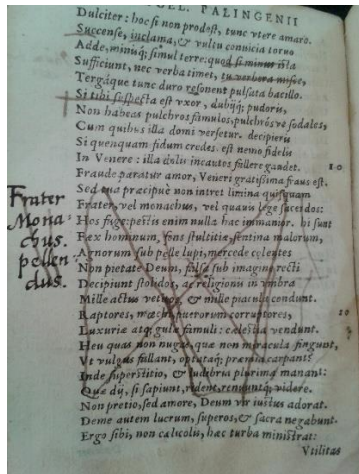 PALINGENII
Dulciter: hoc ſi non prodeſt, tunc vtere amaro.
Succenſe, inclama, & vultu conuicia toruo
Adde, miniſq; ſimul terre: quod ſi minus illa
Sufficiunt, nec verba timet, tu verbera miſce,
Tergáque tunc duro reſonent pulſata bacillo.
Si tibi ſuſpecta eſt vxor, dubijq; pudoris,
Non habeas pulchros famulos, pulchróſve ſodales,
Cum quibus illa domi verſetur. decipieris
Si quenquam fidum credes. eſt nemo fidelis
In Venere: illa dolis incautos fallere gaudet. 10
Fraude paratur amor, Veneri gratiſſima fraus eſt.
Sed tua præcipuè non intret limina quiſquam
Frater, vel monachus, vel quauis lege ſacerdos:
Hos fuge: peſtis enim nulla hac immanior. hi ſunt
Fex hominum, fons ſtultitiæ, ſentina malorum,
Agnorum ſub pelle lupi, mercede colentes
Non pietate Deum, falſa ſub imagine recti
Decipiunt ſtolidos, ac religionis in vmbra
Mille actus vetitos, & mille piacula condunt.
Raptores, mœchi, puerorum corruptores, 20
Luxuriæ atq; gulæ famuli: cæleſtia vendunt.
Heu quas non nugas, quæ non miracula fingunt,
Vt vulgus fallant, optatáq; præmia carpant?
Inde ſuperſtitio, & ludibria plurima manant:
Quæ dij, ſi ſapiunt, rident, renuuntq; videre.
Non pretio, ſed amore, Deum vir iuſtus adorat.
Deme autem lucrum, ſuperos, & ſacra negabunt.
Ergo ſibi, non cælicolis, hac turba miniſtrat:
Vtilitas
Frater
Mona
chus.
pellen
dus.